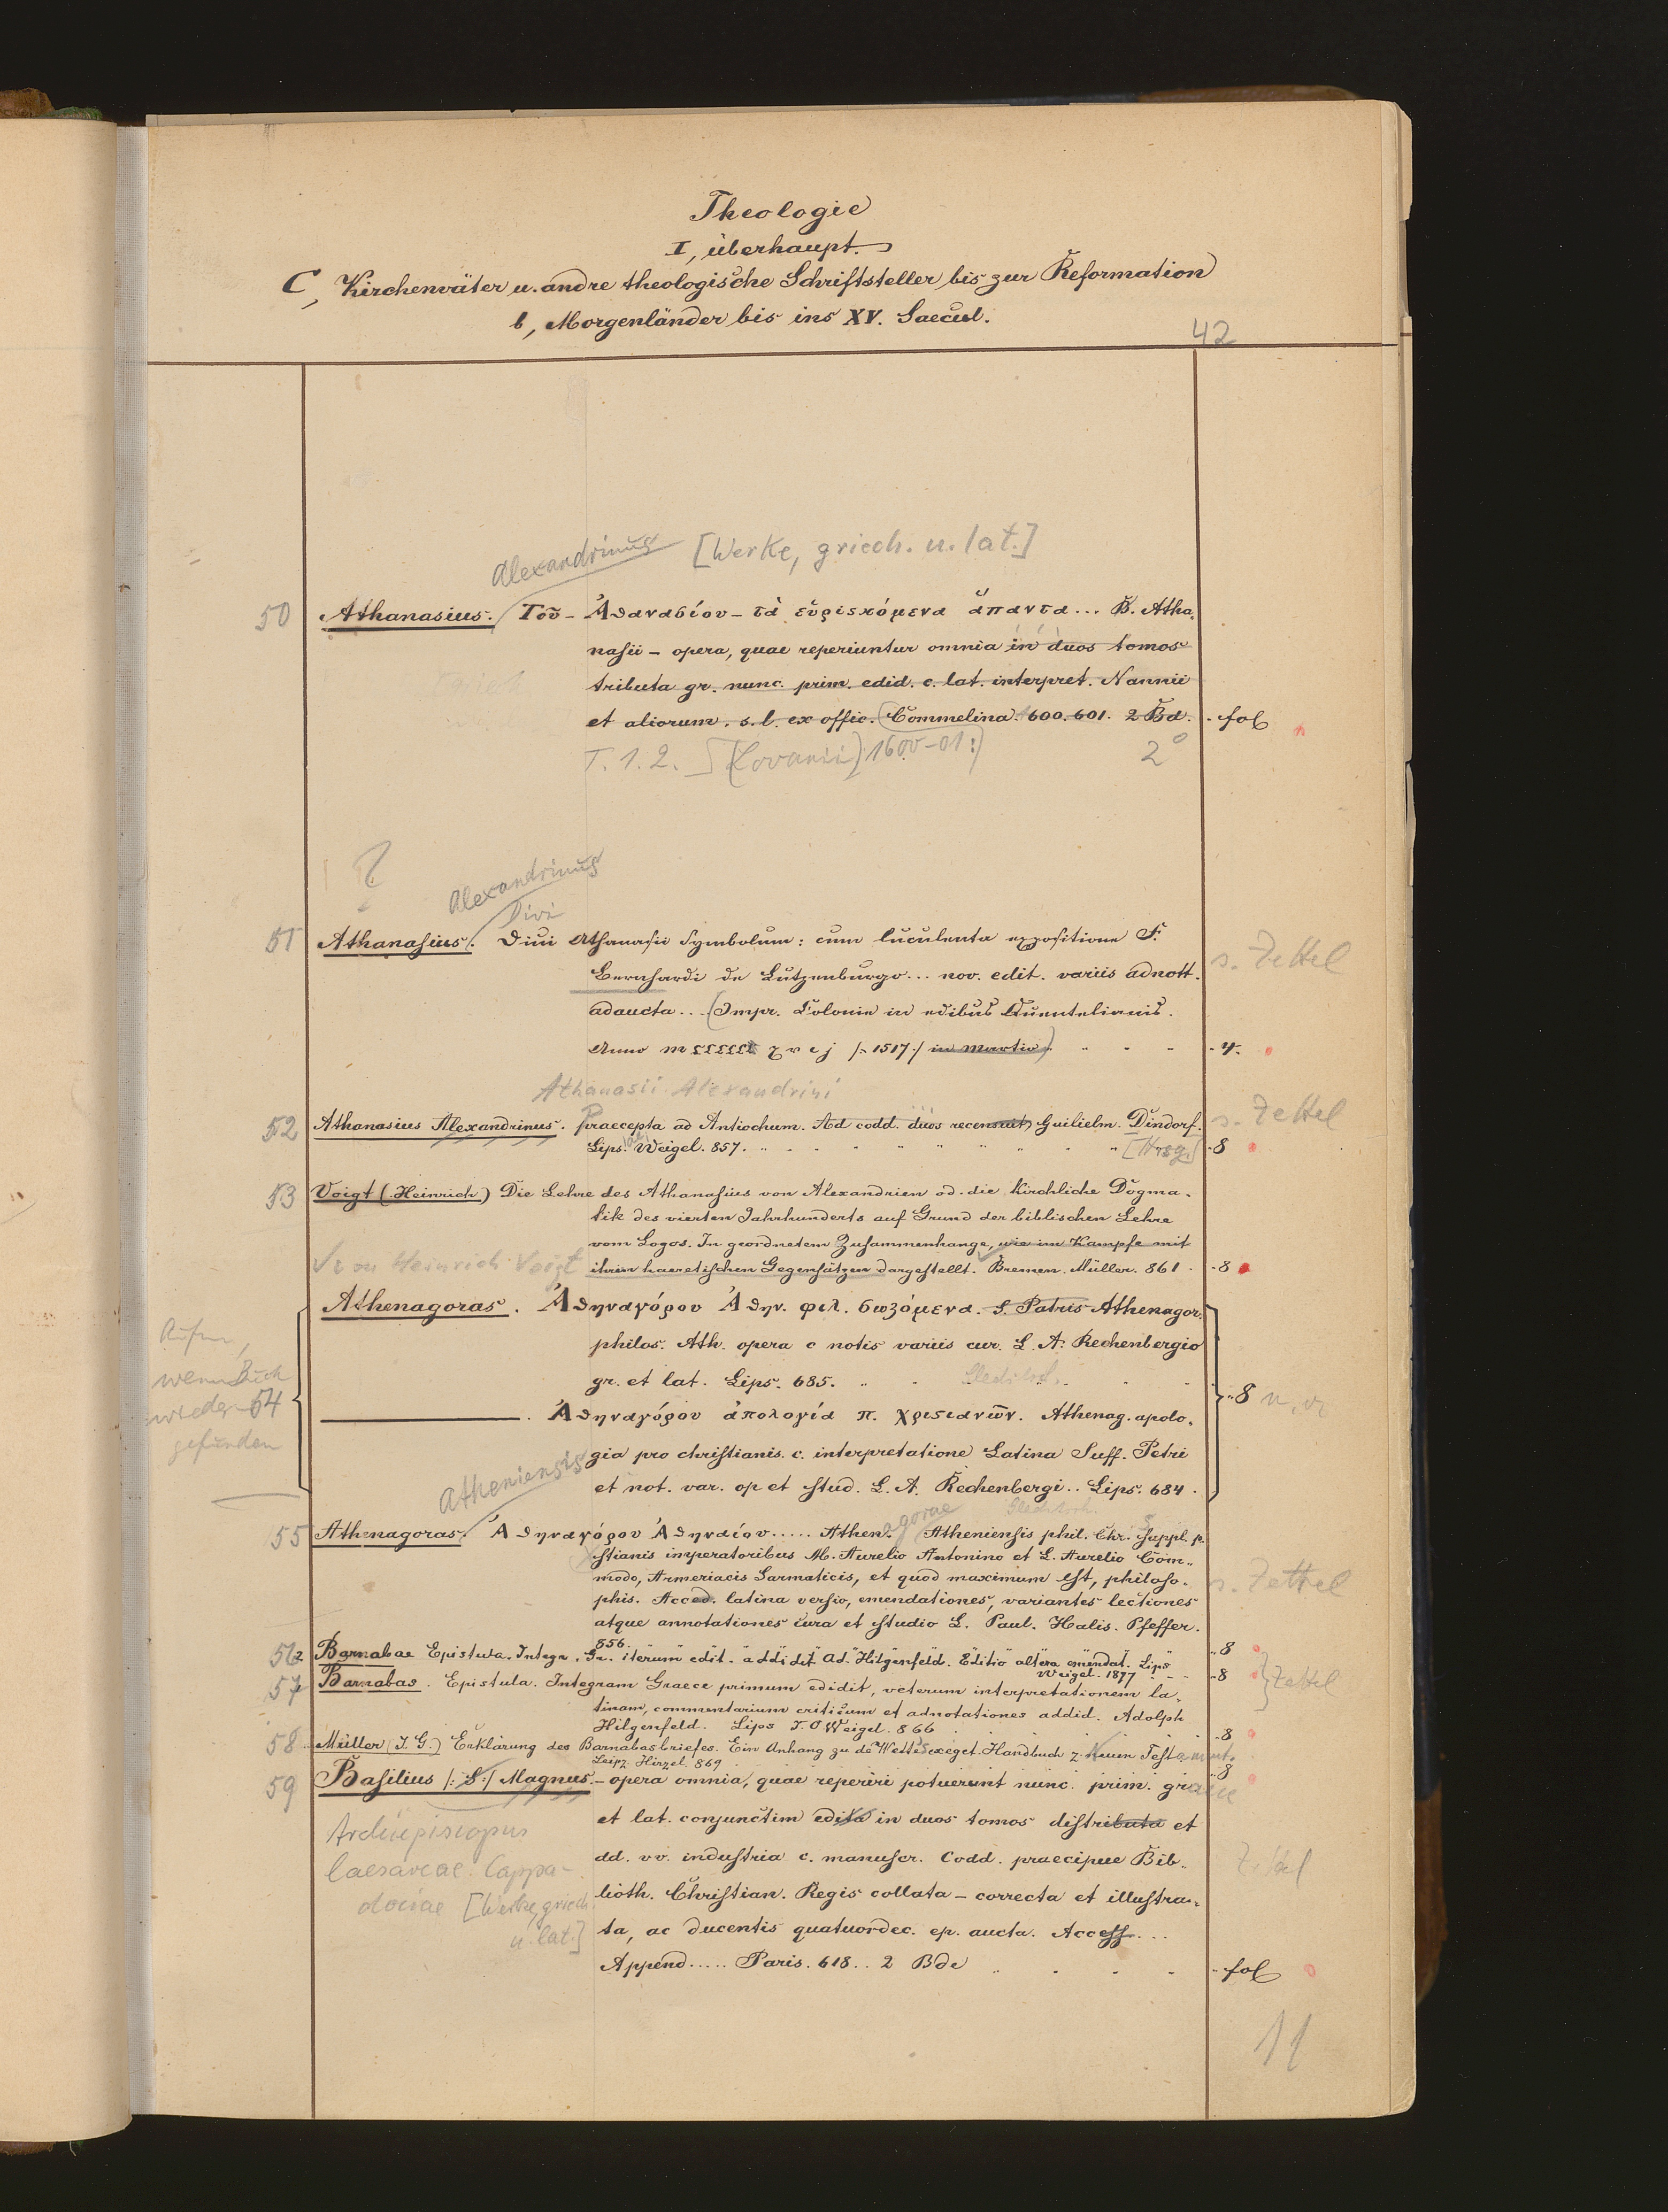 Theologie
I, überhaupt.
C, Kirchenväter u. andre theologische Schriftsteller bis zur Reformation
b, Morgenländer bis ins XV. Saecul.
42
Alexandrinus [Werke, griech. u. lat.]
50 Athanasius. Τοῦ – Ἀθανασίου – τὰ εὑρισκόμενα ἅπαντα ... B. Atha-
nasii – opera, quae reperiuntur omnia in duos tomos
tributa gr. nunc. prim. edid. c. lat. interpret. Nannii
et aliorum. s. l. ex offic. Commelina. 600. 601. 2 Bd. - fol
T. 1. 2. [Lovanii] 1600-01:) 2°
?
Alexandrinus
Divi
51 Athanasius. Diui Athanasii Symbolum: cum luculenta expositione F.
Bernhardi de Lutzenburgo ... nov. edit. variis adnott. s. Zettel
adaucta ... (Impr. Colonie in edibus Quentelianis.
Anno m ccccc xvij /: 1517 :/ in martio) - 4.
Athanasii Alexandrini
52 Athanasius Alexandrinus. Praecepta ad Antiochum. Ad codd. duos recensuit Guilielm. Dindorf. s. Zettel
Lips. Weigel. 857. [Hrsg.] - 8
53 Voigt (Heinrich) Die Lehre des Athanasius von Alexandrien od. die Kirchliche Dogma-
tik des vierten Jahrhunderts auf Grund der biblischen Lehre
vom Logos. In geordnetem Zusammenhange, wie im Kampfe mit
Von Heinrich Voigt ihren haeretischen Gegensätzen dargestellt. Bremen. Müller. 861. - 8
Athenagoras. Ἀθηναγόρου Ἀθην. φιλ. σωζόμενα. S. Patris Athenagor.
philos. Ath. opera c notis variis cur. L. A. Rechenbergio
gr. et lat. Lips. 685. Gleditsch.
wenn Buch
wieder 54
gefunden
- 8
. Ἀθηναγόρου ἀπολογία π. χριστιανῶν. Athenag. apolo-
gia pro christianis. c. interpretatione Latina Suff. Petri
et not. var. op et stud. L. A. Rechenbergi .. Lips. 684.
Gleditsch.
Atheniensis
55 Athenagoras. Ἀθηναγόρου Ἀθηναίου ..... Athenagorae Atheniensis phil. Chr. suppl. p.
stianis imperatoribus M. Aurelio Antonino et L. Aurelio Com-
modo, Armeriacis Sarmaticis, et quod maximum est, philoso- s. Zettel
phis. Acced. latina versio, emendationes, variantes lectiones
atque annotationes cura et studio L. Paul. Halis. Pfeffer.
856. - 8
56 Barnabae Epistula. Integr. Gr. iterum edit. addidit Ad. Hilgenfeld. Editio altera emendat. Lips
Weigel. 1877 - 8
57 Barnabas. Epistula. Integram Graece primum edidit, veterum interpretationem la- Zettel
tinam, commentarium criticum et adnotationes addid. Adolph
Hilgenfeld. Lips T. O Weigel. 866 - 8
58 Müller (J. G.) Erklärung des Barnabasbriefes. Ein Anhang zu de Wette's exeget. Handbuch z. Neuen Testament.
Leipz Hirzel. 869 - 8
59 Basilius /: S :/ Magnus. – opera omnia, quae reperiri potuerunt nunc. prim. graece
et lat. conjunctim edita in duos tomos distributa et
Archiepiscopus
dd. vv. industria c. manuscr. Codd. praecipue Bib- Zettel
Caesareae Cappa-
lioth. Christian. Regis collata – correcta et illustra-
dociae [Werke, griech.
ta, ac ducentis quatuordec. ep. aucta. Access. ...
u. lat.]
Append ..... Paris. 618 .. 2 Bde - fol
11